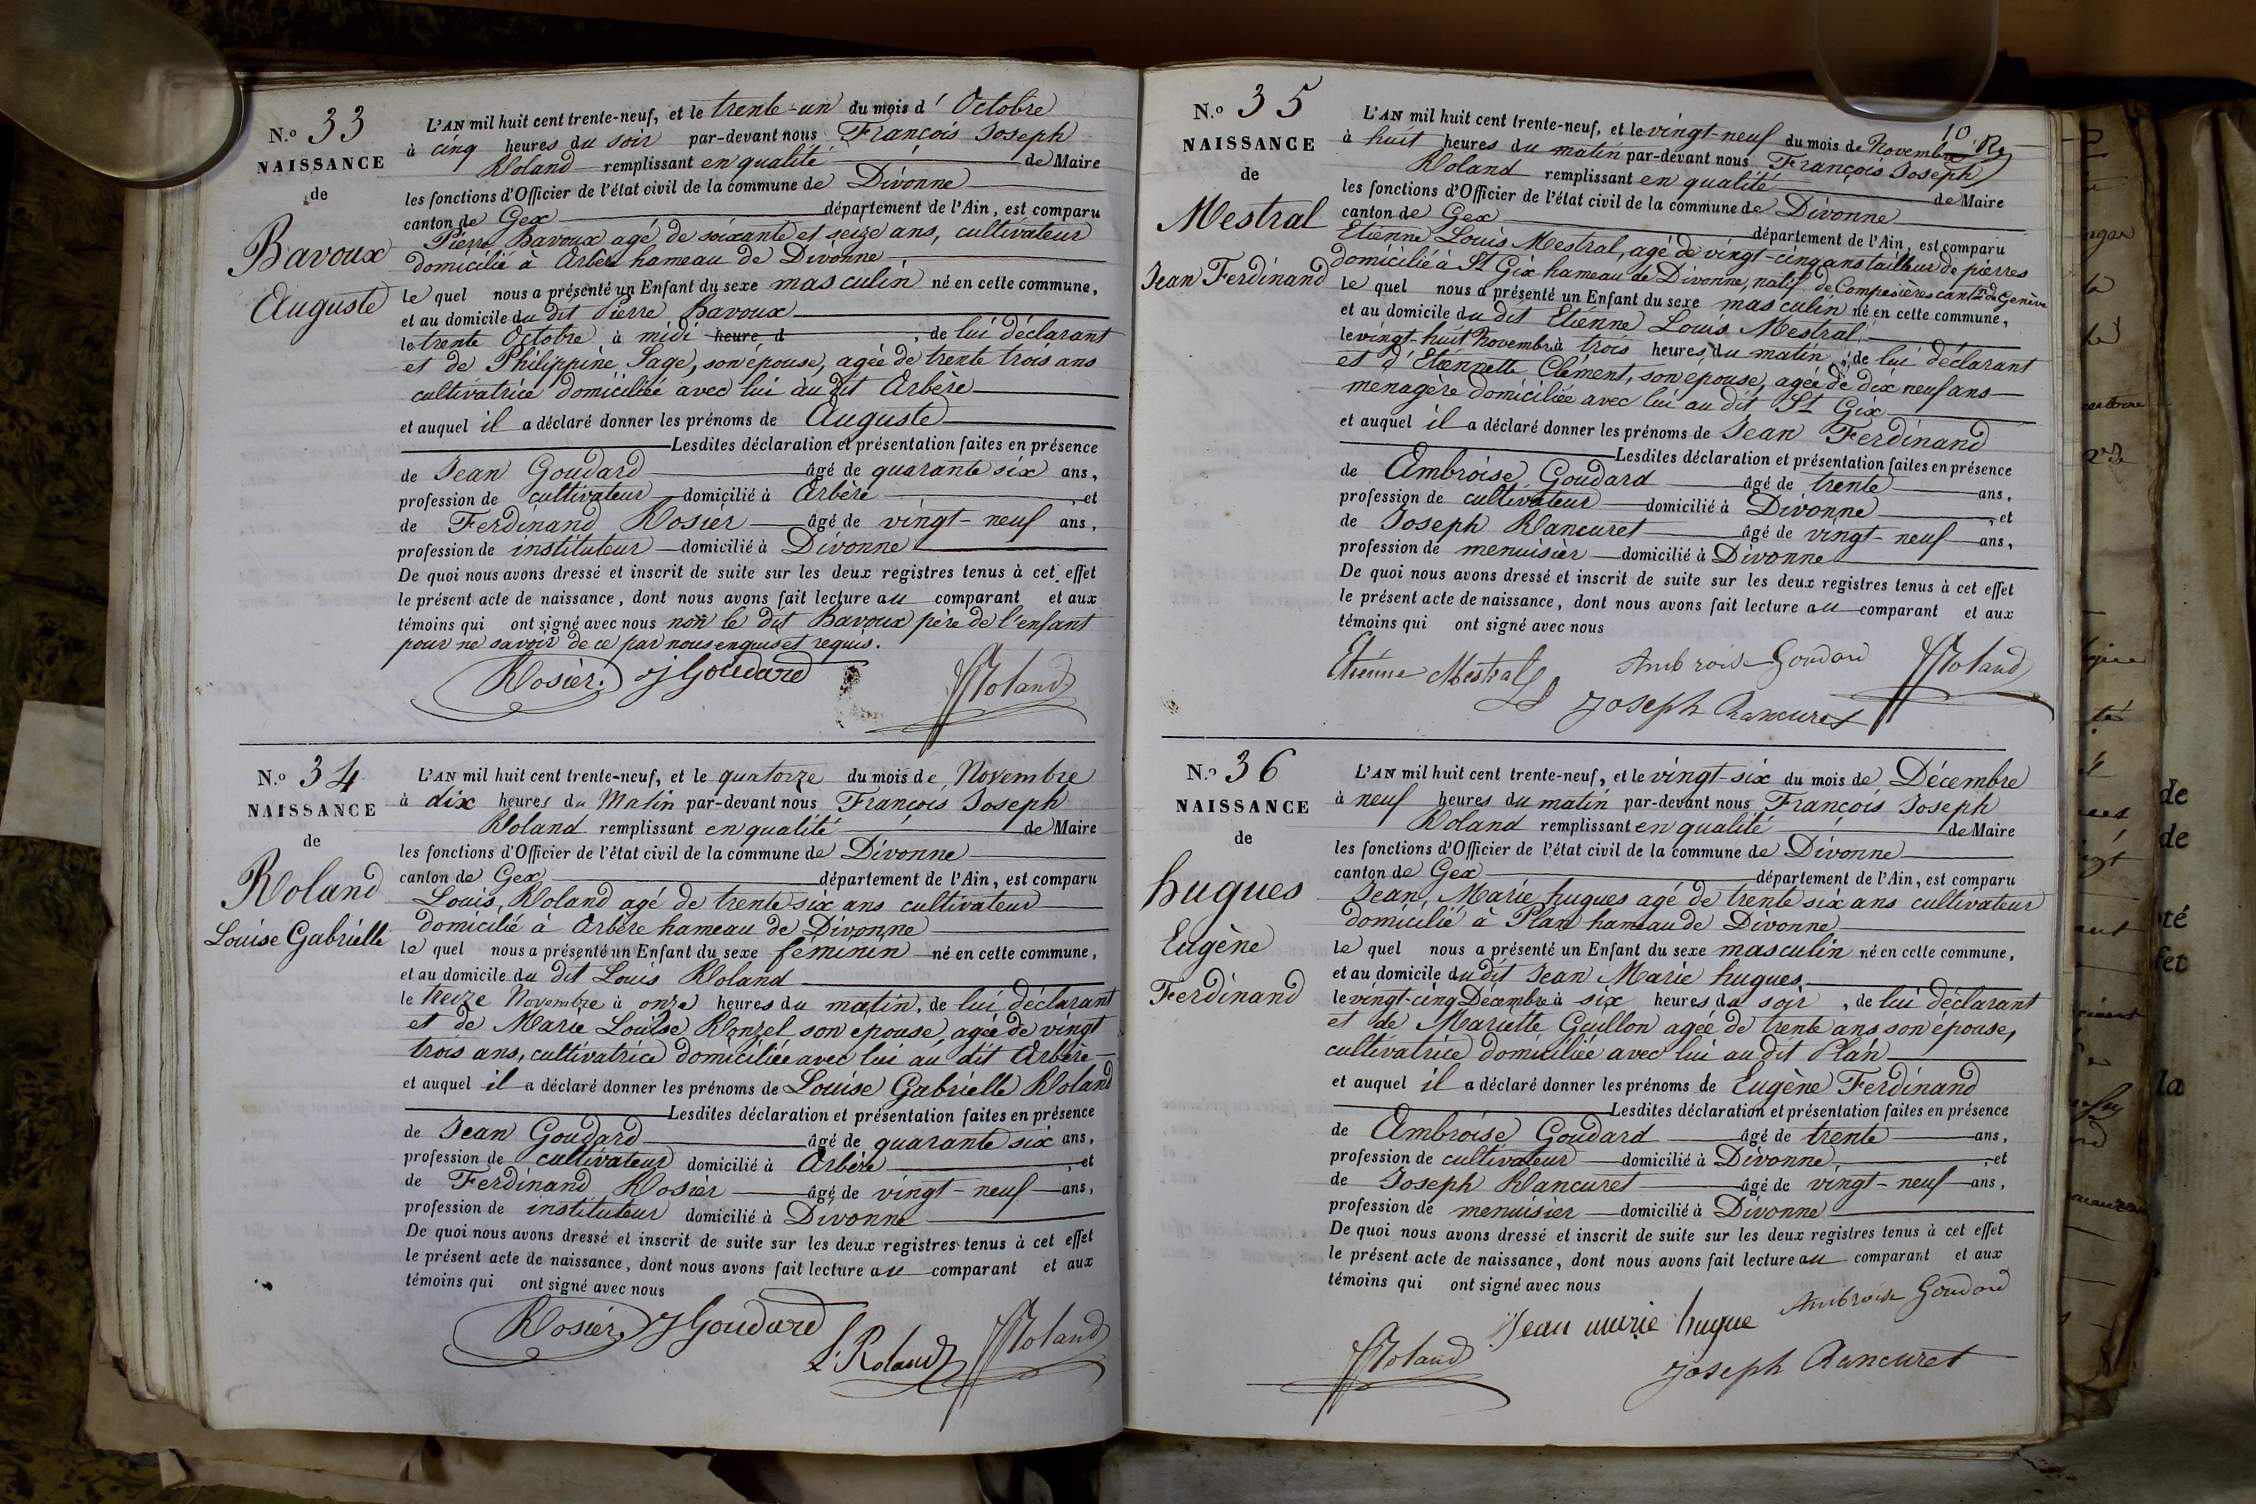 N.º 33
NAISSANCE
de
Bavoux
Auguste
L'AN mil huit cent trente-neuf, et le trente-un du mois d' Octobre
à cinq heures du soir par-devant nous François Joseph
Roland remplissant en qualité de Maire
les fonctions d'Officier de l'état civil de la commune de Divonne
canton de Gex département de l'Ain, est comparu
Pierre Bavoux agé de soixante et seize ans, cultivateur
domicilié à Arbère hameau de Divonne
le quel nous a présenté un Enfant du sexe masculin né en cette commune,
et au domicile du dit Pierre Bavoux
le trente Octobre à midi heure d , de lui déclarant
et de Philippine Sage, son épouse, agée de trente trois ans
cultivatrice domiciliée avec lui au dit Arbère
et auquel il a déclaré donner les prénoms de Auguste
Lesdites déclaration et présentation faites en présence
de Jean Goudard âgé de quarante six ans,
profession de cultivateur domicilié à Arbère , et
de Ferdinand Rosier âgé de vingt-neuf ans,
profession de instituteur domicilié à Divonne
De quoi nous avons dressé et inscrit de suite sur les deux registres tenus à cet effet
le présent acte de naissance, dont nous avons fait lecture au comparant et aux
témoins qui ont signé avec nous non le dit Bavoux père de l'enfant
pour ne savoir de ce par nous enquis et requis.
Rosier. J Goudard JJRoland
N.º 34
NAISSANCE
de
Roland
Louise Gabrielle
L'AN mil huit cent trente-neuf, et le quatorze du mois de Novembre
à dix heures du Matin par-devant nous François Joseph
Roland remplissant en qualité de Maire
les fonctions d'Officier de l'état civil de la commune de Divonne
canton de Gex département de l'Ain, est comparu
Louis Roland agé de trente six ans cultivateur
domicilié à Arbère hameau de Divonne
le quel nous a présenté un Enfant du sexe féminin né en cette commune,
et au domicile du dit Louis Roland
le treize Novembre à onze heures du matin, de lui déclarant
et de Marie Louise Ronzel son épouse, agée de vingt
trois ans, cultivatrice domiciliée avec lui au dit Arbère
et auquel il a déclaré donner les prénoms de Louise Gabrielle Roland
Lesdites déclaration et présentation faites en présence
de Jean Goudard âgé de quarante six ans,
profession de cultivateur domicilié à Arbère , et
de Ferdinand Rosier âgé de vingt-neuf ans,
profession de instituteur domicilié à Divonne
De quoi nous avons dressé et inscrit de suite sur les deux registres tenus à cet effet
le présent acte de naissance, dont nous avons fait lecture au comparant et aux
témoins qui ont signé avec nous
Rosier. J Goudard L. Roland JJRoland
N.º 35
NAISSANCE
de
Mestral
Jean Ferdinand
L'AN mil huit cent trente-neuf, et le vingt-neuf du mois de Novembre
à huit heures du matin par-devant nous François Joseph
Roland remplissant en qualité de Maire
les fonctions d'Officier de l'état civil de la commune de Divonne
canton de Gex département de l'Ain, est comparu
Etienne Louis Mestral, agé de vingt-cinq ans tailleur de pierres
domicilié à St Gix hameau de Divonne, natif de Compesières cantn de Genève
le quel nous a présenté un Enfant du sexe masculin né en cette commune,
et au domicile du dit Etienne Louis Mestral
le vingt-huit Novembre à trois heures du matin, de lui déclarant
et d'Etiennette Clément, son épouse, agée de dix neuf ans
menagère domiciliée avec lui au dit St Gix
et auquel il a déclaré donner les prénoms de Jean Ferdinand
Lesdites déclaration et présentation faites en présence
de Ambroise Goudard âgé de trente ans,
profession de cultivateur domicilié à Divonne , et
de Joseph Rancuret âgé de vingt-neuf ans,
profession de menuisier domicilié à Divonne
De quoi nous avons dressé et inscrit de suite sur les deux registres tenus à cet effet
le présent acte de naissance, dont nous avons fait lecture au comparant et aux
témoins qui ont signé avec nous
Etienne Mestral Ambroise Goudard JJRoland
Joseph Rancuret
N.º 36
NAISSANCE
de
hugues
Eugène
Ferdinand
L'AN mil huit cent trente-neuf, et le vingt-six du mois de Décembre
à neuf heures du matin par-devant nous François Joseph
Roland remplissant en qualité de Maire
les fonctions d'Officier de l'état civil de la commune de Divonne
canton de Gex département de l'Ain, est comparu
Jean Marie hugues agé de trente six ans cultivateur
domicilié à Plan hameau de Divonne
le quel nous a présenté un Enfant du sexe masculin né en cette commune,
et au domicile du dit Jean Marie hugues
le vingt-cinq Décembre à six heures du soir, de lui déclarant
et de Mariette Guillon agée de trente ans son épouse,
cultivatrice domiciliée avec lui au dit Plan
et auquel il a déclaré donner les prénoms de Eugène Ferdinand
Lesdites déclaration et présentation faites en présence
de Ambroise Goudard âgé de trente ans,
profession de cultivateur domicilié à Divonne , et
de Joseph Rancuret âgé de vingt-neuf ans,
profession de menuisier domicilié à Divonne
De quoi nous avons dressé et inscrit de suite sur les deux registres tenus à cet effet
le présent acte de naissance, dont nous avons fait lecture au comparant et aux
témoins qui ont signé avec nous
Jean marie hugue Ambroise Goudard
JJRoland Joseph Rancuret
de
de
té
fet
la